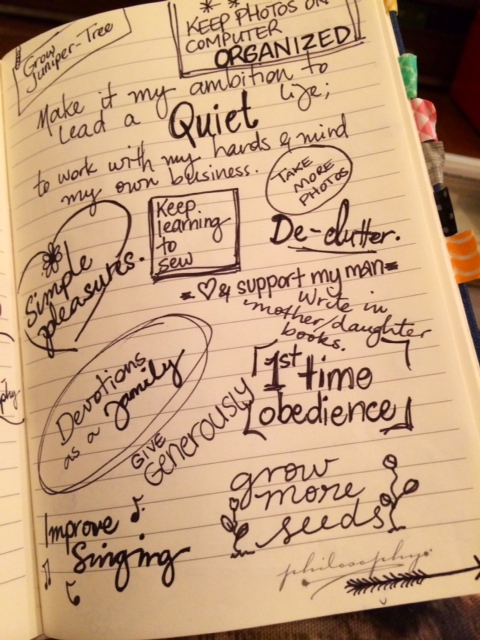 Grow
Juniper-Tree
KEEP PHOTOS ON
COMPUTER
ORGANIZED
Make it my ambition to
lead a Quiet life;
to work with my hands & mind
my own business.
TAKE
MORE
PHOTOS
Keep
learning
to
sew
De-clutter.
Simple
pleasures.
=♡& support my man=
Write in
mother/daughter
books.
Devotions
as a family
1st time
obedience
GIVE
Generously
grow
more
seeds
Improve
Singing
philosophy